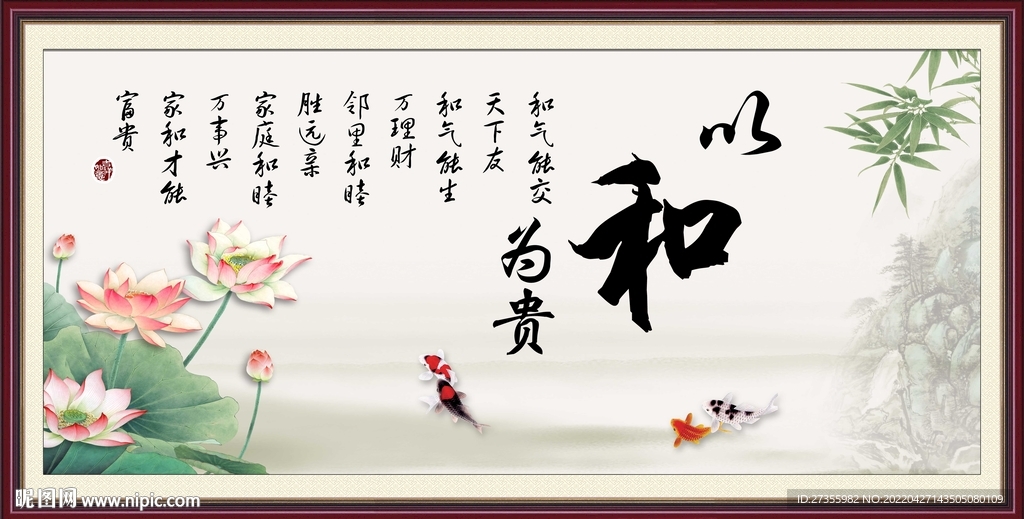 以和为贵
和气能交
天下友
和气能生
万理财
邻里和睦
胜远亲
家庭和睦
万事兴
家和才能
富贵
昵图网 www.nipic.com
ID:27355982 NO:20220427143505080109